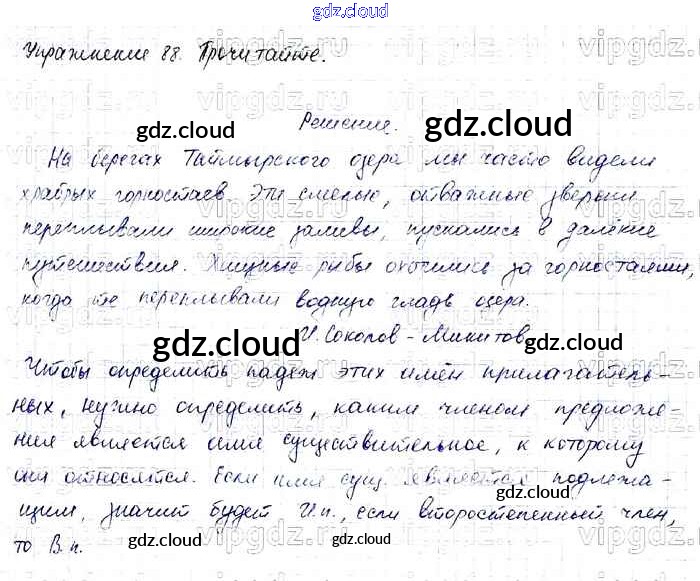 gdz.cloud
Упражнение 88. Прочитайте.
Решение.
На берегах Таймырского озера мы часто видели
храбрых горностаев. Эти смелые, отважные зверьки
переплывали широкие заливы, пускались в далёкие
путешествия. Хищные рыбы охотились за горностаями,
когда те переплывали водную гладь озера.
И. Соколов-Микитов
Чтобы определить падеж этих имён прилагатель-
ных, нужно определить, каким членом предложе-
ния является имя существительное, к которому
они относятся. Если имя сущ. является подлежа-
щим, значит будет И.п., если второстепенный член,
то В.п.